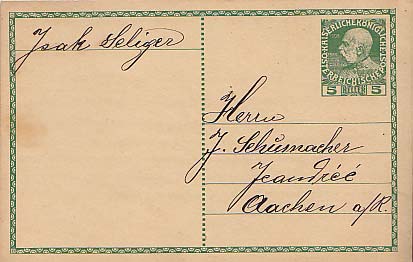 Isak Seliger
KAISERLICHEKÖNIGLICHEÖSTERREICHISCHE
5 HELLER 5
Herrn
J. Schumacher
Aachen a/R.